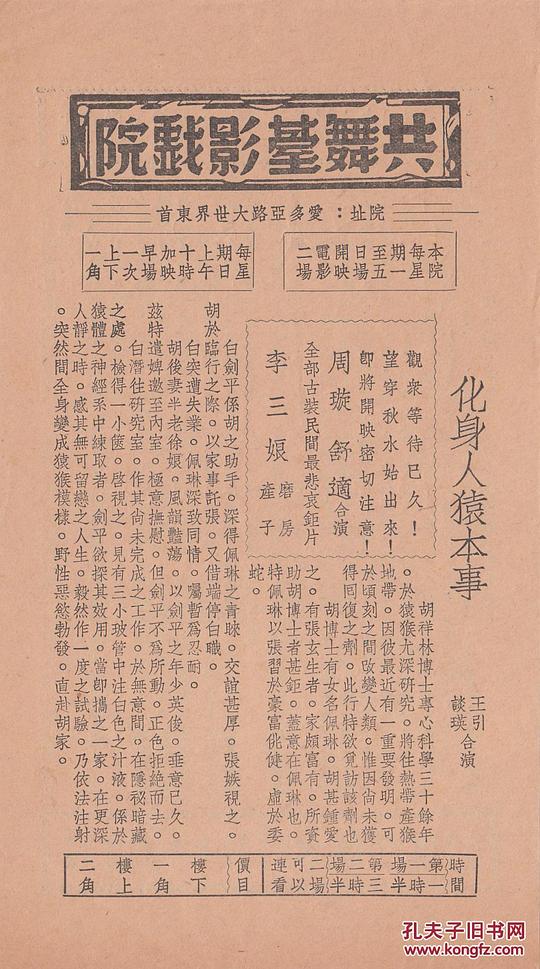 共舞臺影戲院
院址：愛多亞路大世界東首
本院每星期一至五日場開映電影二場
每星期日上午十時加映早場一次上下一角
化身人猿本事
王引
談瑛合演
觀衆等待已久！
望穿秋水始出來！
即將開映密切注意！
周璇 舒適合演
全部古裝民間最悲哀鉅片
李三娘 磨房產子
胡祥林博士專心科學三十餘年
。於猿猴尤深研究。將往熱帶產猴
地帶。因彼最近有一重要發明。可
於頃刻之間改變人類。惟因尚未獲
得囘復之劑。此行特欲覓訪該劑也
胡博士有女名佩琳。胡甚鍾愛
之。有張玄生者。家頗富有。所資
助胡博士者甚鉅。蓋意在佩琳也。
特佩琳以張習於豪富佻健。虛於委
蛇。
白劍平係胡之助手。深得佩琳之青睞。交誼甚厚。張嫉視之。
胡於臨行之際。以家事託張。又借端停白職。
白突遭失業。佩琳深致同情。囑暫爲忍耐。
胡後妻半老徐娘。風韻豔蕩。以劍平之年少英俊。垂意已久。
茲特遣婢邀至內室。極意撫慰。但劍平不爲所動。正色拒絕而去。
白潛往研究室。作其尚未完成之工作。於無意間。在隱祕暗藏
之處。檢得一小篋。啓視之。見有三小玻管中注白色之汁液。係於
猿體之神經系中練取者。劍平欲探其效用。當卽攜之一家。在更深
人靜之時。感其無可留戀之人生。毅然作一度之試驗。乃依法注射
。突然間全身變成猿猴模樣。野性惡慾勃發。直赴胡家。
時間 第一場一時半 第二場三時半 二場可以連看
價目 樓下一角 樓上二角
孔夫子旧书网
www.kongfz.com